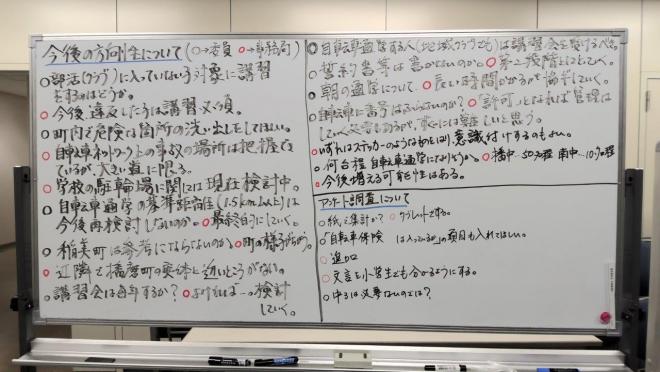 今後の方向性について (○→委員 ○→事務局)
○部活(クラブ)に入っていない子対象に講習
をするのはどうか。
○今後、違反した子は講習必須。
○町内で危険な箇所の洗い出しをしてほしい。
○自転車ネットワーク上の事故の場所は把握
ているが、大きい道に限る。
○学校の駐輪場に関しては現在検討中。
○自転車通学の基準距離(1.5km以上)は
今後再検討しないのか。○最終的にしていく。
○稲美町は参考にならないのか ○町の様子
○近隣で播磨町の実体と近いところがない。
○講習会は毎年するか? 検討
していく。
○自転車通学する人(地域クラブでも)は講習会を受けるべき。
○誓約書等は書かないのか。○第二段階としておく。
○朝の通学について ○長い時間がかかるが協力していく。
自転車に番号は ないのか? ○「許可」となれば管理は
していく必要もあるが、 難しいと思う。
○いずれはステッカーのようなものをはり意識付けするのもよい。
○何台程自転車通学になりそうか。○播中…50%程 南中…10%程
○今後増える可能性はある。
アンケート調査について
○紙で集計か? ○タブレットでする。
○「自転車保険は入っているか」の項目も入れてほしい。
○追加
○文言を小学生でも分かるようにする。
○中3は必要ないのでは?